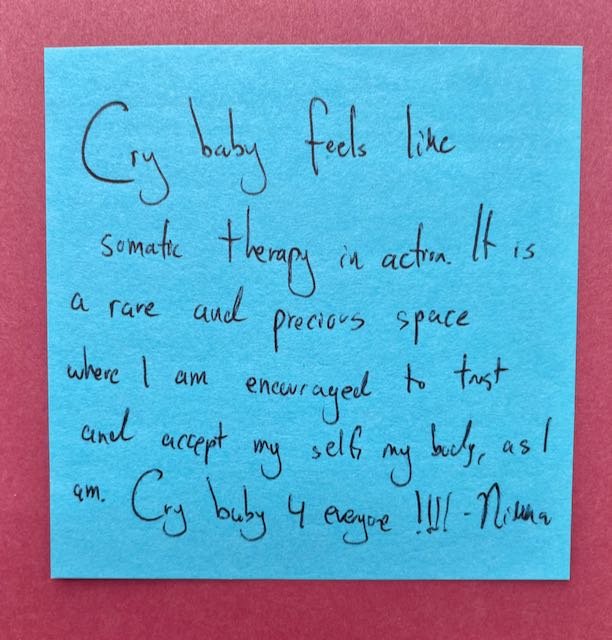 Cry baby feels like
somatic therapy in action. It is
a rare and precious space
where I am encouraged to trust
and accept my self, my body, as I
am. Cry baby 4 everyone !!!! -